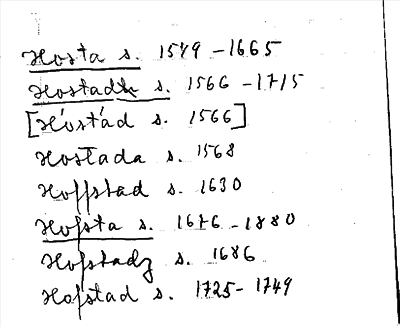 Hosta s. 1549-1665
Hostadh s. 1566-1715
[Hóstád s. 1566]
Hostada s. 1568
Hoffstad s. 1630
Hofsta s. 1676-1880
Hofstadz s. 1686
Hofstad s. 1725-1749